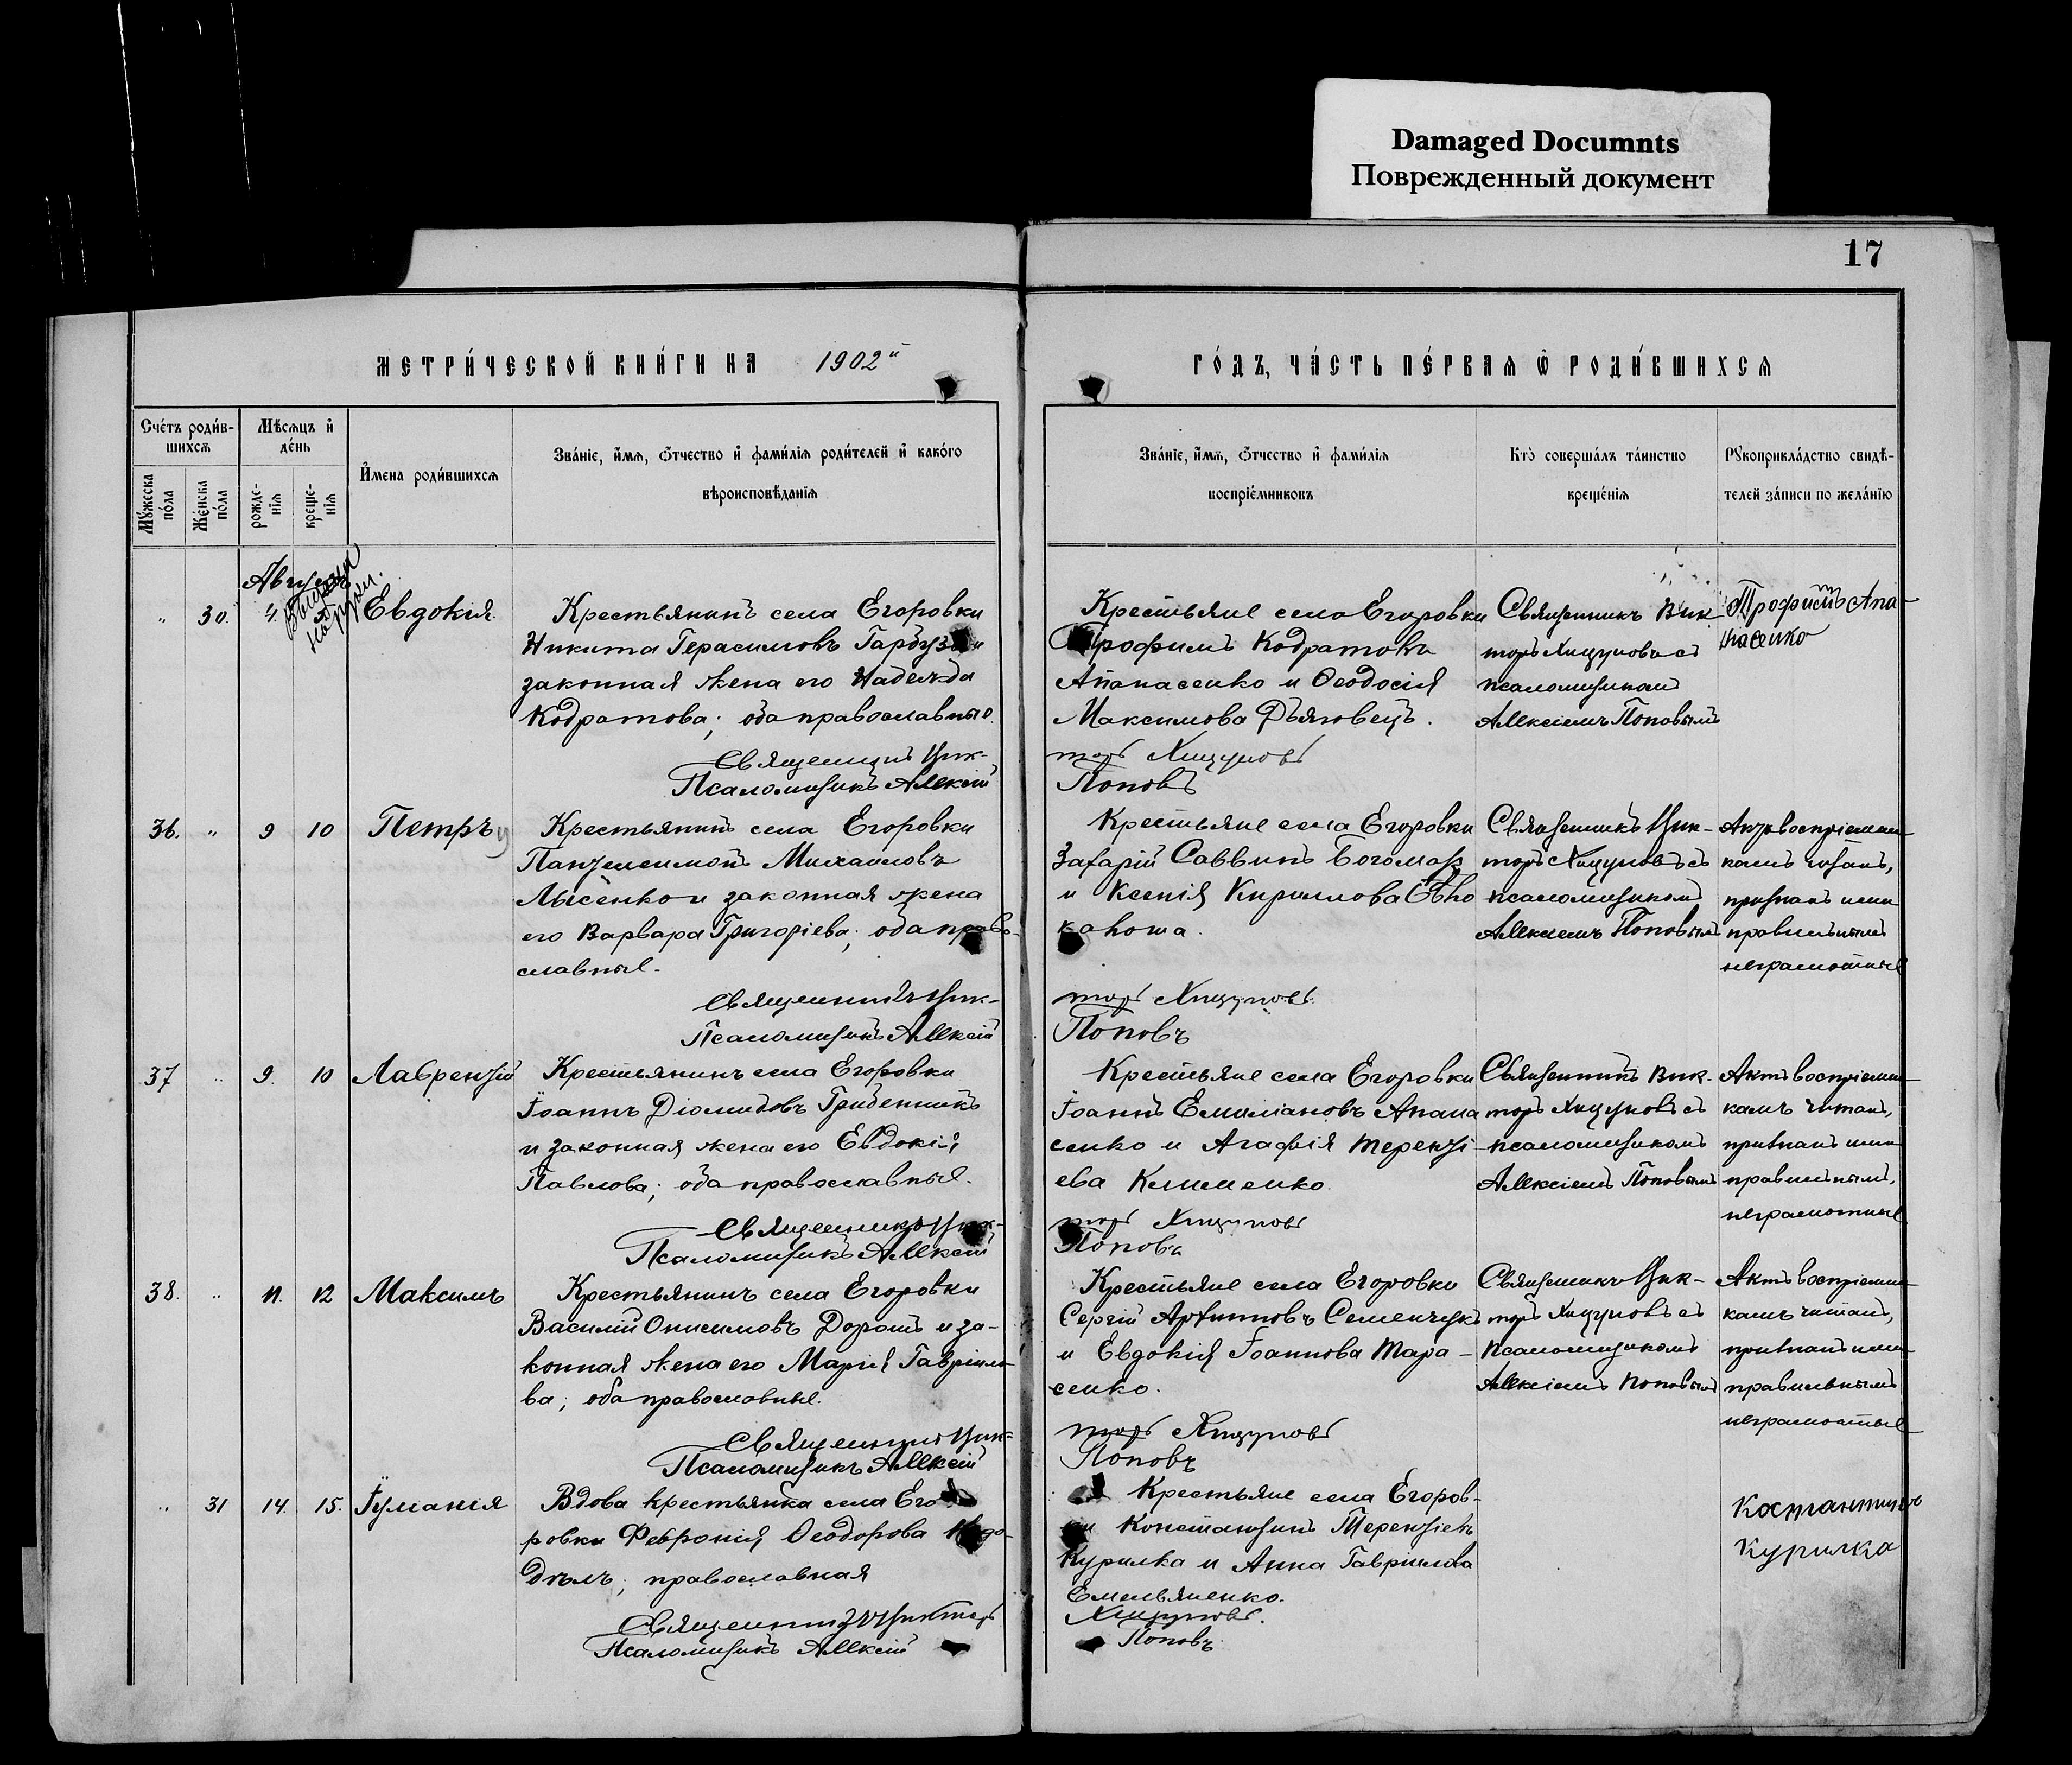 Damaged Documnts
Поврежденный документ
17
МЕТРИ́ЧЕСКОЙ КНИ́ГИ НА 1902й
ГО́ДЪ, ЧА́СТЬ ПЕ́РВАЯ Ѡ РОДИ́ВШИХСѦ
Сче́тъ роди́в-
шихсѧ
Мѣсѧцъ и҆
де́нь
Му́жеска
по́ла
Же́нска
по́ла
рожде-
нїѧ
креще-
нїѧ
И҆мена роди́вшихсѧ
Зва́нїе, и҆́мѧ, ѻ҆́тчество и҆ фами́лїѧ роди́телей и҆ како́го
вѣроисповѣ́данїѧ
Зва́нїе, и҆́мѧ, ѻ҆́тчество и҆ фами́лїѧ
воспрїе́мниковъ
Кто̀ соверша́лъ та́инство
креще́нїѧ
Рꙋкоприкла́дство свидѣ́-
телей за́писи по жела́нїю
Августъ
„ 30. 4. Евдокія
Крестьянинъ села Егоровки
Никита Герасимовъ
законная жена его Надежда
Кодратова; оба православные.
Священникъ Вик-
Псаломщикъ Алексій
Крестьяне села Егоровки
Трофимъ Кодратовъ
Апанасенко и Ѳеодосія
Максимова Дѣяговецъ.
торъ Хицуновъ
Поповъ
Священникъ Вик-
торъ Хицуновъ съ
псаломщикомъ
Алексіемъ Поповымъ
Трофимъ Апа-
насенко
36. „ 9 10 Петръ
Крестьянинъ села Егоровки
Пантелеимонъ Михаиловъ
Лысенко и законная жена
его Варвара Григоріева; оба право-
славные.
Священникъ Вик-
Псаломщикъ Алексій
Крестьяне села Егоровки
Захарій Саввинъ Богомаз
и Ксенія Кириллова
торъ Хицуновъ
Поповъ
Священникъ Вик-
торъ Хицуновъ съ
псаломщикомъ
Алексіемъ Поповымъ
Актъ воспріемни-
камъ читанъ,
признанъ ими
правильнымъ
неграмотные
37 „ 9. 10 Лаврентій
Крестьянинъ села Егоровки
Іоаннъ Діомидовъ Гребенникъ
и законная жена его Евдокія
Павлова; оба православные.
Священникъ Вик-
Псаломщикъ Алексій
Крестьяне села Егоровки
Іоаннъ Емиліановъ Апана
сенко и Агафія Теренті-
ева Клименко
торъ Хицуновъ
Поповъ
Священникъ Вик-
торъ Хицуновъ съ
псаломщикомъ
Алексіемъ Поповымъ
Актъ воспріемни-
камъ читанъ,
признанъ ими
правильнымъ,
неграмотные
38. „ 11. 12 Максимъ
Крестьянинъ села Егоровки
Василій Онисимовъ Дорошъ и за-
конная жена его Марія Гавріило-
ва; оба православные.
Священникъ Вик-
Псаломщикъ Алексій
Крестьяне села Егоровки
Сергій Архиповъ Семенчукъ
и Евдокія Іоаннова Тара-
сенко.
торъ Хицуновъ
Поповъ
Священникъ Вик-
торъ Хицуновъ съ
псаломщикомъ
Алексіемъ Поповымъ
Актъ воспріемни-
камъ читанъ,
признанъ ими
правильнымъ
неграмотные
„ 31 14. 15. Іуліанія
Вдова крестьянка села Его-
ровки Февронія Ѳеодорова
православная
Священникъ Викторъ
Псаломщикъ Алексій
Крестьяне села Егоров-
ки Константинъ Терентіевъ
Курилка и Анна Гавріилова
Емельяненко.
Хицуновъ.
Поповъ
Костантинъ
Курилка